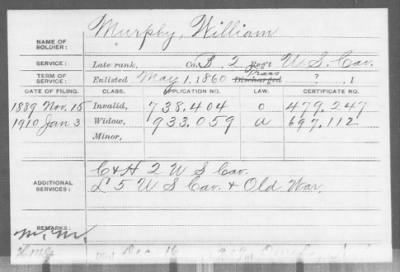 NAME OF SOLDIER: Murphy, William
SERVICE: Late rank, Co. B, 2 Reg't U S Cav.
TERM OF SERVICE: Enlisted May 1, 1860 Discharged ?, 1
DATE OF FILING. CLASS. APPLICATION NO. LAW. CERTIFICATE NO.
1889 Nov. 15 Invalid, 738.404 O 479.247
1910 Jan 3 Widow, 933.059 a 697.112
Minor,
ADDITIONAL SERVICES: C & H 2 U S Cav.
L 5 U S Cav. & Old War.
REMARKS:
M. M.
Dec 16